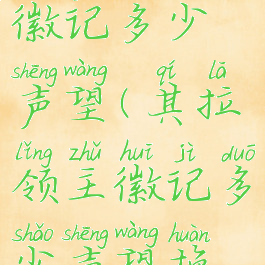 徽记多少
shēng wàng qí lā
声望(其拉
lǐng zhǔ huī jì duō
领主徽记多
shǎo shēng wàng huàn
少声望换